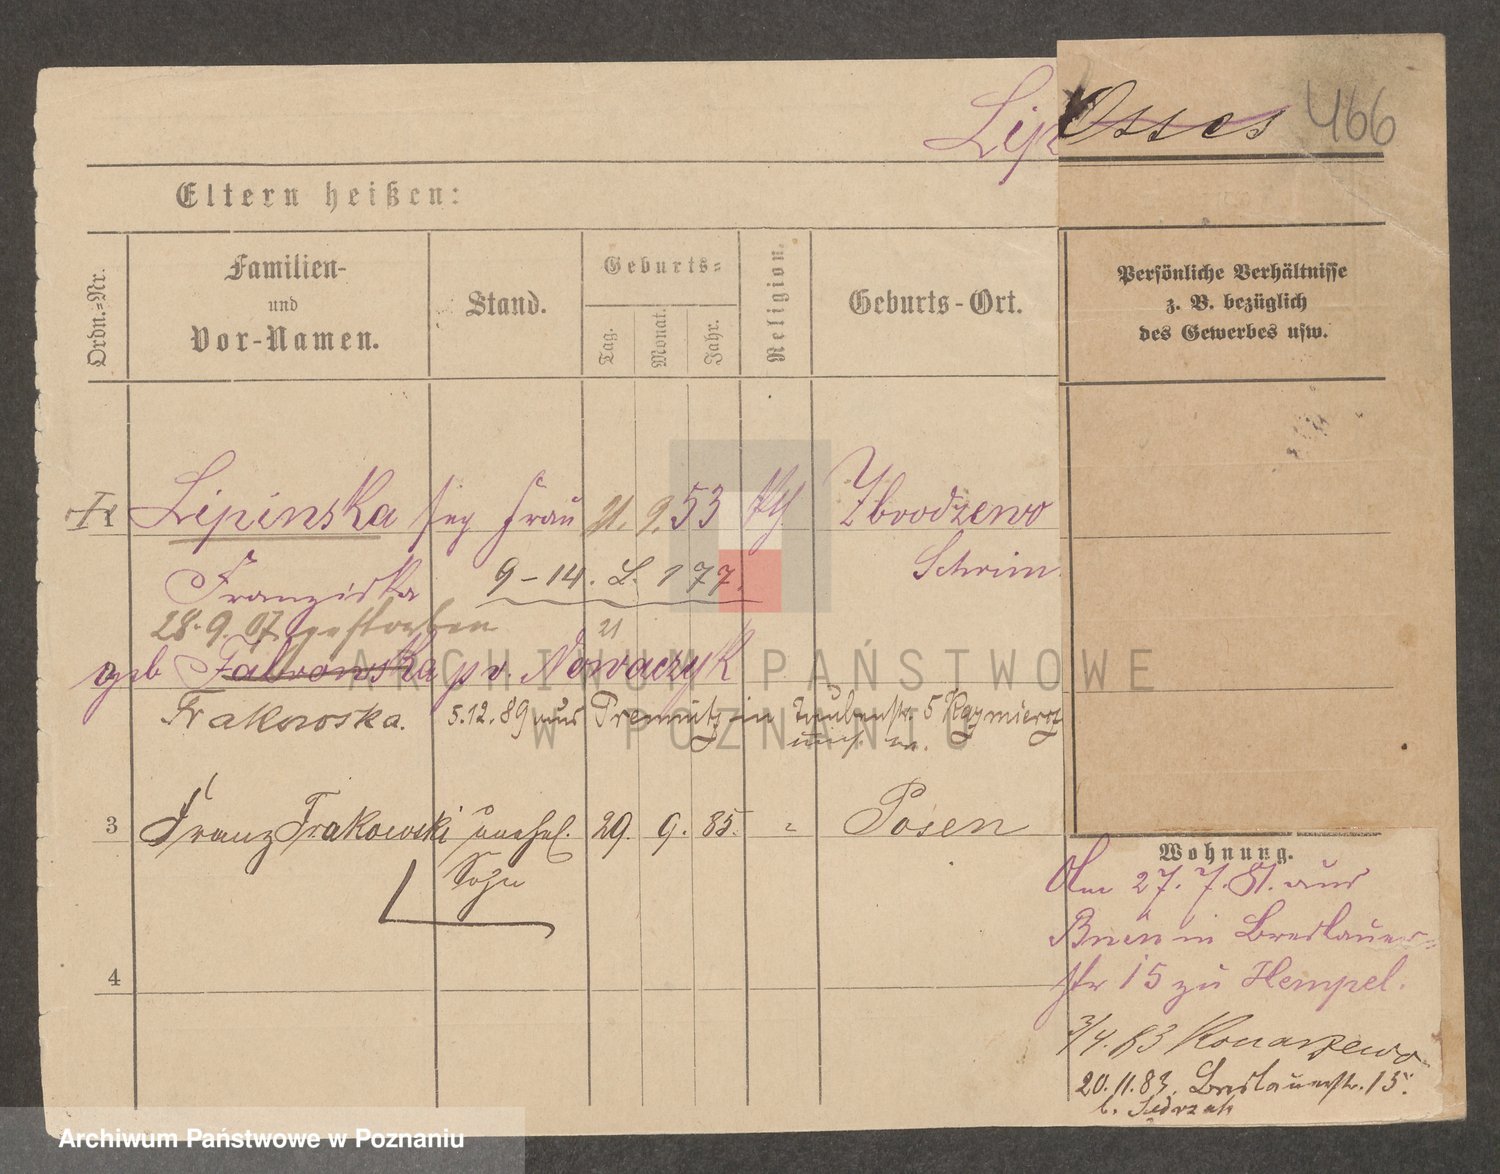 Osses 466
Lip
Eltern heißen:
Ordn.-Nr.
Familien-
und
Vor-Namen.
Stand.
Geburts-
Tag.
Monat.
Jahr.
Religion.
Geburts-Ort.
Persönliche Verhältnisse
z. B. bezüglich
des Gewerbes usw.
1 Lipinska sep Frau 21. 9. 53 kth Zbrodzewo
Franziska 9-14. L. 177. Schrim
28.9.07 gestorben 21
geb Nowaczyk
Frakowska. 5.12.89 aus in Taubenstr. 5
3 Franz Frakowski unehel. 29. 9. 85. " Posen
Sohn
4
Wohnung.
Am 27.7.81. aus
Bnin in Breslauer-
str 15 zu Hempel.
3/4.83 Konarzewo
20.11.83. Breslauerstr. 15.
b. Sedrzak
ARCHIWUM PAŃSTWOWE
W POZNANIU
Archiwum Państwowe w Poznaniu